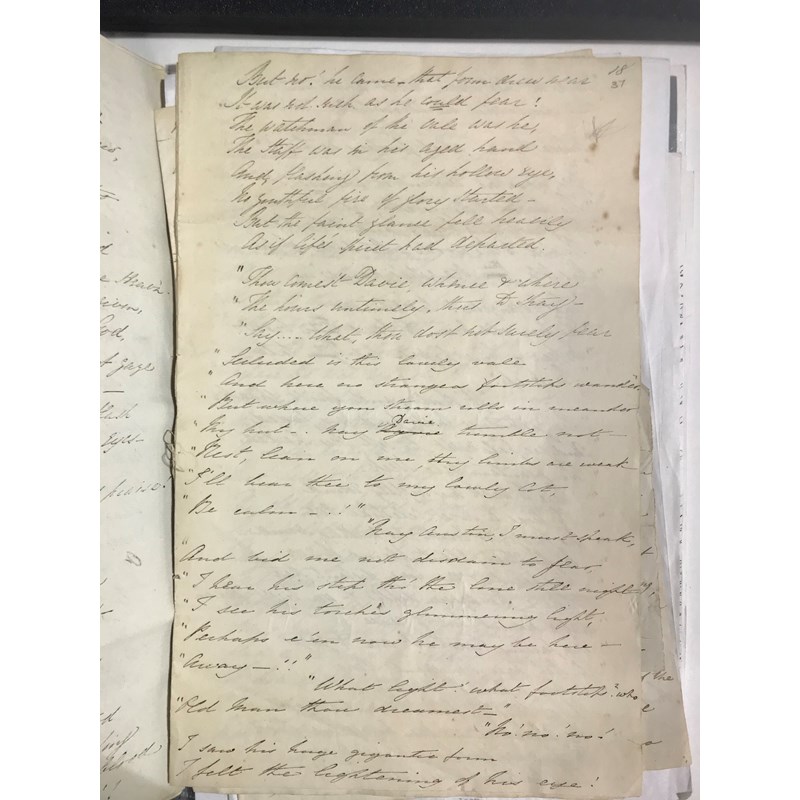 18
37
But no! he came - that form drew near
It was not such as he could fear!
The watchman of the vale was he,
The Staff was in his aged hand
And, flashing from his hollow eye,
No youthful fire of glory started -
But the faint glance fell heavily
As if life's spirit had departed.
"Thou comest Davie, Whence & where
"The hours untimely, thus to stray -
"Say.... What, thou dost not surely fear
"Secluded is this lonely vale
"And here no strangers footsteps wander,
"But where yon stream rolls in meander
"My hut - nay Davie tremble not -
"Rest, lean on me, thy limbs are weak
"I'll bear thee to my lowly Cot,
"Be calm - . !"
"Nay Austin, I must speak,
"And bid me not disdain to fear,
"I hear his step thro' the lone still night,
"I see his torches glimmering light,
"Perhaps e'en now he may be here -
"Away - !!"
"What light! what footsteps? who
"Old Man thou dreamest -"
"No! no! no!
I saw his huge gigantic form
I felt the lightening of his eye!